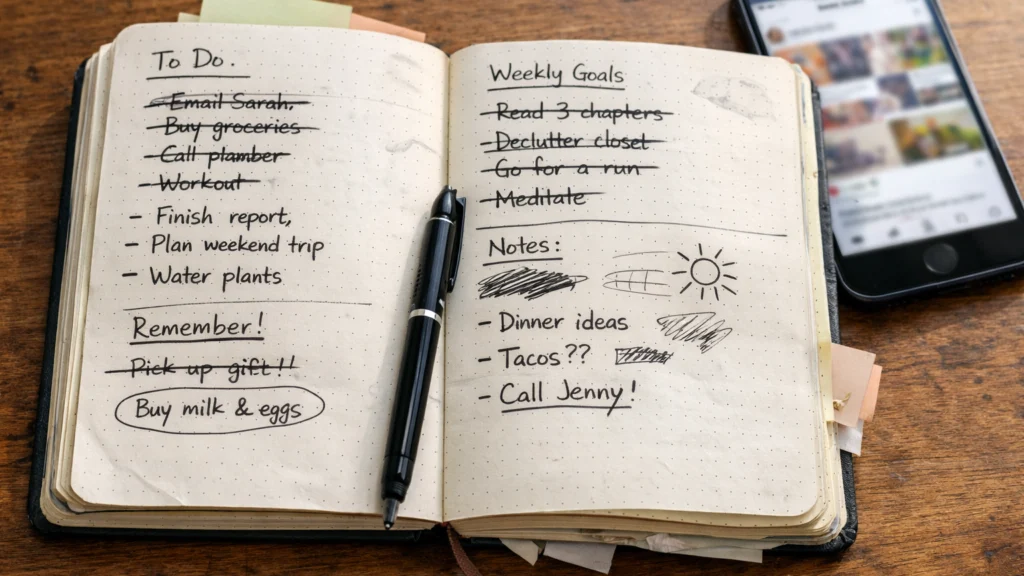 To Do.
Email Sarah.
Buy groceries
Call plamber
Workout
– Finish report,
– Plan weekend trip
– Water plants
Remember!
Pick up gift!!
Buy milk & eggs
Weekly Goals
Read 3 chapters
Declutter closet
Go for a run
Meditate
Notes:
– Dinner ideas
– Tacos??
– Call Jenny!